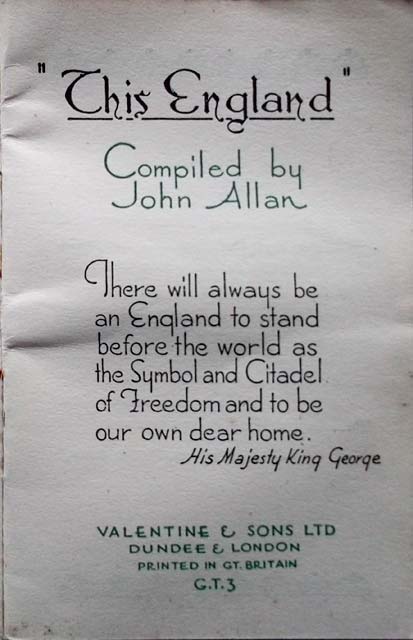 "This England"
Compiled by
John Allan
There will always be
an England to stand
before the world as
the Symbol and Citadel
of Freedom and to be
our own dear home.
His Majesty King George
VALENTINE & SONS LTD
DUNDEE & LONDON
PRINTED IN GT. BRITAIN
G.T.3